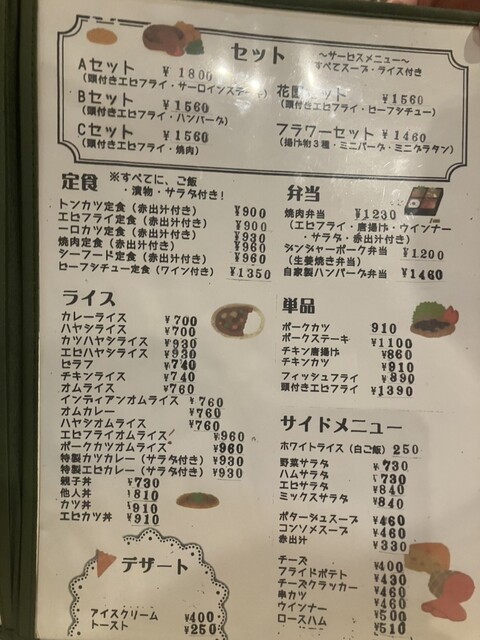 セット
~サービスメニュー~
すべてスープ・ライス付き
Aセット ¥1800
(頭付きエビフライ・サーロインステーキ)
Bセット ¥1560
(頭付きエビフライ・ハンバーグ)
Cセット ¥1560
(頭付きエビフライ・焼肉)
セット ¥1560
(頭付きエビフライ・ビーフシチュー)
フラワーセット ¥1460
(揚げ物3種・ミニバーグ・ミニグラタン)
定食 ※すべてに、ご飯
・漬物・サラダ付き!
トンカツ定食(赤出汁付き) ¥900
エビフライ定食(赤出汁付き) ¥900
一口カツ定食(赤出汁付き) ¥930
焼肉定食(赤出汁付き) ¥960
シーフード定食(赤出汁付き) ¥960
ビーフシチュー定食(ワイン付き) ¥1350
弁当
焼肉弁当 ¥1230
(エビフライ・唐揚げ・ウインナー
・サラダ・赤出汁付き)
ジンジャーポーク弁当 ¥1200
(生姜焼き弁当)
自家製ハンバーグ弁当 ¥1460
ライス
カレーライス ¥700
ハヤシライス ¥700
カツハヤシライス ¥930
エビハヤシライス ¥930
ピラフ ¥740
チキンライス ¥740
オムライス ¥760
インディアンオムライス ¥760
オムカレー ¥760
ハヤシオムライス ¥760
エビフライオムライス ¥960
ポークカツオムライス ¥960
特製カツカレー(サラダ付き) ¥930
特製エビカレー(サラダ付き) ¥930
親子丼 ¥730
他人丼 ¥810
カツ丼 ¥910
エビカツ丼 ¥910
単品
ポークカツ 910
ポークステーキ ¥1100
チキン唐揚げ ¥860
チキンカツ ¥910
フィッシュフライ ¥890
頭付きエビフライ ¥1390
サイドメニュー
ホワイトライス(白ご飯) 250
野菜サラダ ¥730
ハムサラダ ¥730
エビサラダ ¥840
ミックスサラダ ¥840
ポタージュスープ ¥460
コンソメスープ ¥460
赤出汁 ¥330
チーズ ¥400
フライドポテト ¥430
チーズクラッカー ¥460
串カツ ¥460
ウインナー ¥500
ロースハム ¥510
デザート
アイスクリーム ¥400
トースト ¥250